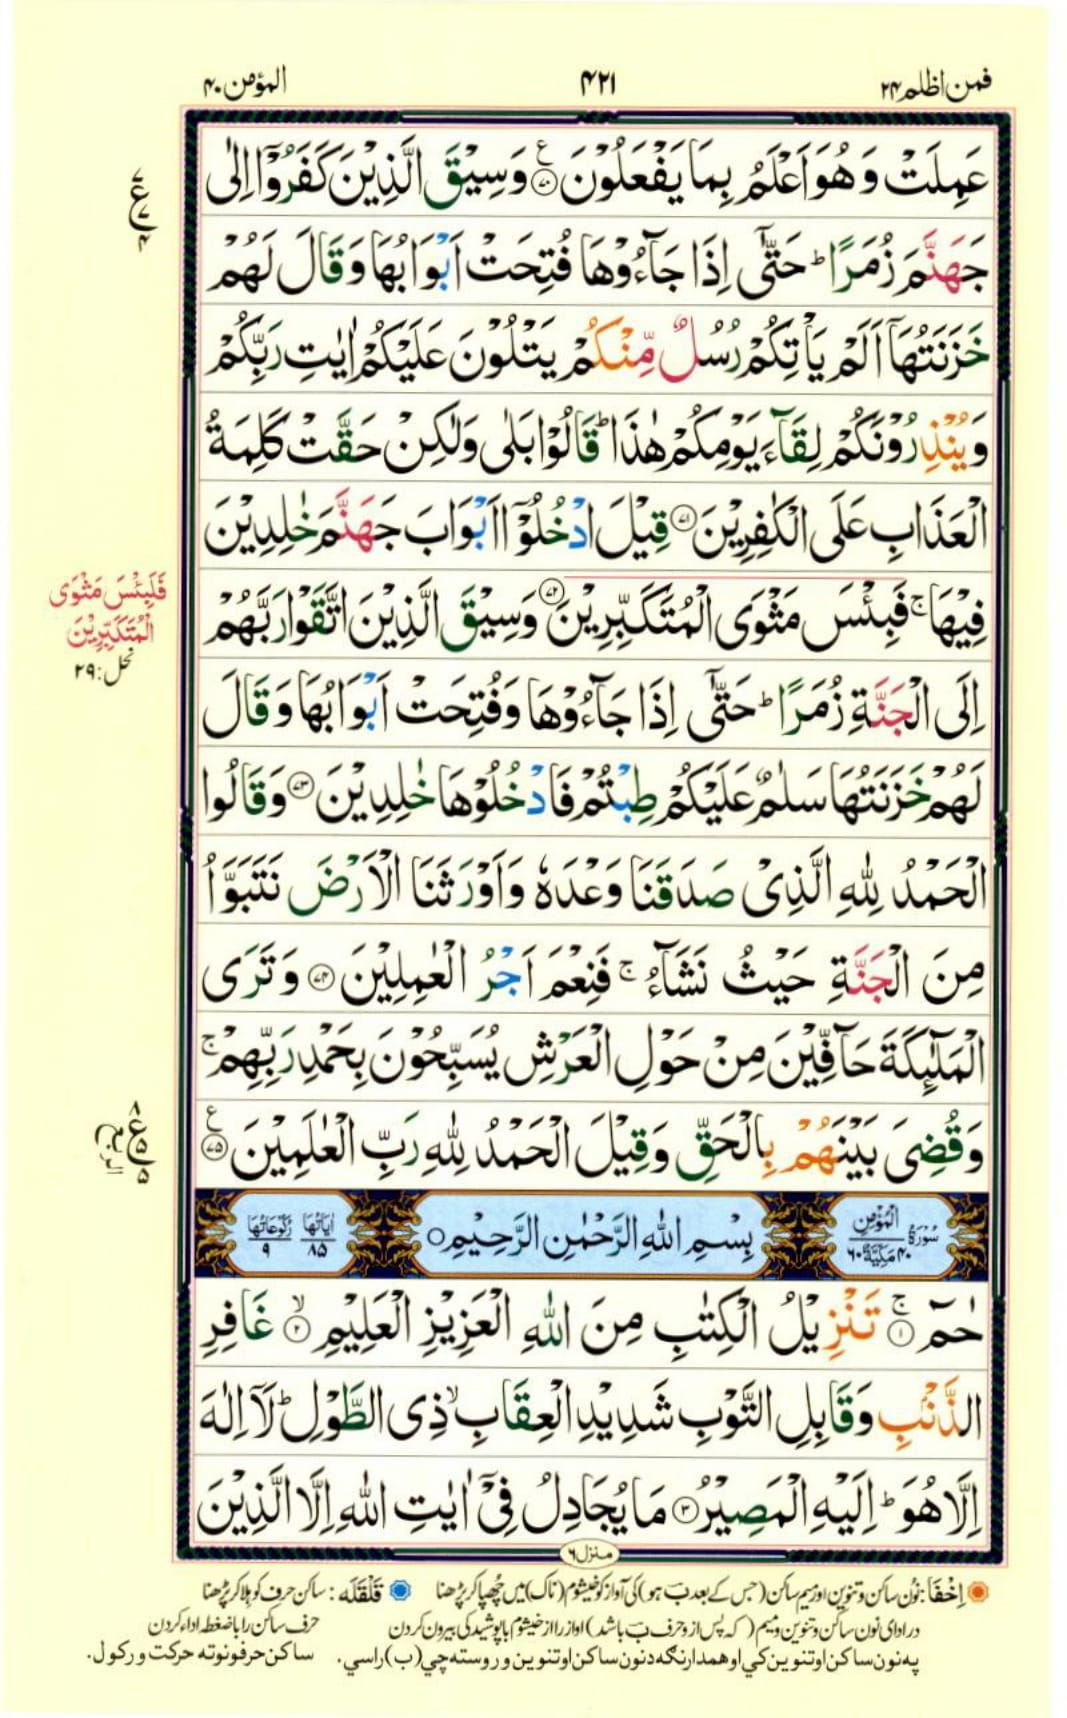 فمن اظلم ۲۴
۴۲۱
المؤمن ۴۰
عَمِلَتْ وَهُوَ اَعْلَمُ بِمَا يَفْعَلُوْنَ ۷۰ ع وَسِيْقَ الَّذِيْنَ كَفَرُوْۤا اِلٰى
جَهَنَّمَ زُمَرًا ؕ حَتّٰۤى اِذَا جَآءُوْهَا فُتِحَتْ اَبْوَابُهَا وَقَالَ لَهُمْ
خَزَنَتُهَاۤ اَلَمْ يَاْتِكُمْ رُسُلٌ مِّنْكُمْ يَتْلُوْنَ عَلَيْكُمْ اٰيٰتِ رَبِّكُمْ
وَيُنْذِرُوْنَكُمْ لِقَآءَ يَوْمِكُمْ هٰذَا ؕ قَالُوْا بَلٰى وَلٰكِنْ حَقَّتْ كَلِمَةُ
الْعَذَابِ عَلَى الْكٰفِرِيْنَ ۷۱ قِيْلَ ادْخُلُوْۤا اَبْوَابَ جَهَنَّمَ خٰلِدِيْنَ
فِيْهَا ۚ فَبِئْسَ مَثْوَى الْمُتَكَبِّرِيْنَ ۷۲ وَسِيْقَ الَّذِيْنَ اتَّقَوْا رَبَّهُمْ
اِلَى الْجَنَّةِ زُمَرًا ؕ حَتّٰۤى اِذَا جَآءُوْهَا وَفُتِحَتْ اَبْوَابُهَا وَقَالَ
لَهُمْ خَزَنَتُهَا سَلٰمٌ عَلَيْكُمْ طِبْتُمْ فَادْخُلُوْهَا خٰلِدِيْنَ ۷۳ وَقَالُوا
الْحَمْدُ لِلّٰهِ الَّذِيْ صَدَقَنَا وَعْدَهٗ وَاَوْرَثَنَا الْاَرْضَ نَتَبَوَّاُ
مِنَ الْجَنَّةِ حَيْثُ نَشَآءُ ۚ فَنِعْمَ اَجْرُ الْعٰمِلِيْنَ ۷۴ وَتَرَى
الْمَلٰٓئِكَةَ حَآفِّيْنَ مِنْ حَوْلِ الْعَرْشِ يُسَبِّحُوْنَ بِحَمْدِ رَبِّهِمْ ۚ
وَقُضِيَ بَيْنَهُمْ بِالْحَقِّ وَقِيْلَ الْحَمْدُ لِلّٰهِ رَبِّ الْعٰلَمِيْنَ ۷۵ ع
سُوْرَةُ الْمُؤْمِنِ ۴۰ مَكِّيَّةٌ ۶۰
بِسْمِ اللّٰهِ الرَّحْمٰنِ الرَّحِيْمِ
اٰيَاتُهَا ۸۵
رُكُوْعَاتُهَا ۹
حٰمٓ ۱ ۚ تَنْزِيْلُ الْكِتٰبِ مِنَ اللّٰهِ الْعَزِيْزِ الْعَلِيْمِ ۲ ۙ غَافِرِ
الذَّنْۢبِ وَقَابِلِ التَّوْبِ شَدِيْدِ الْعِقَابِ ۙ ذِى الطَّوْلِ ؕ لَاۤ اِلٰهَ
اِلَّا هُوَ ؕ اِلَيْهِ الْمَصِيْرُ ۳ مَا يُجَادِلُ فِيْۤ اٰيٰتِ اللّٰهِ اِلَّا الَّذِيْنَ
منزل ۶
ع ۷ ۷ ۴
فَلَبِئْسَ مَثْوَى
الْمُتَكَبِّرِيْنَ
نحل: ۲۹
ع ۸ ۵ ۵
الربع
اِخْفَا: نُون ساکن و تنوین اور میم ساکن (جس کے بعد ب ہو) کی آواز کو خیشوم (ناک) میں چُھپا کر پڑھنا
قَلْقَلَه: ساکن حرف کو ہلا کر پڑھنا
در ادای نون ساکن و تنوین و میم (که پس از و حرف ب باشد) اواز را از خیشوم با پوشیدگی بیرون کردن
حرف ساکن را با ضغطه اداء کردن
په نون ساکن او تنوین کي او همدارنګه د نون ساکن او تنوین وروسته چي (ب) راسي.
ساکن حرفونو ته حرکت ورکول.